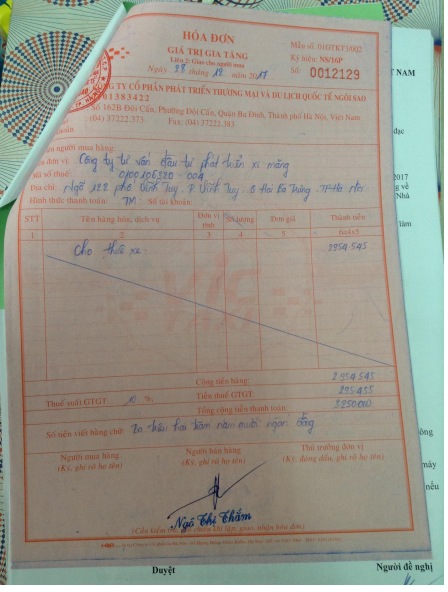 HÓA ĐƠN
GIÁ TRỊ GIA TĂNG
Liên 2: Giao cho người mua
Ngày 28 tháng 12 năm 2017
Mẫu số: 01GTKT3/002
Ký hiệu: NS/16P
Số: 0012129
TY CỔ PHẦN PHÁT TRIỂN THƯƠNG MẠI VÀ DU LỊCH QUỐC TẾ NGÔI SAO
01383422
Số 162B Đội Cấn, Phường Đội Cấn, Quận Ba Đình, Thành phố Hà Nội, Việt Nam
(04) 37222.373 Fax: (04) 37222.383
khoản
người mua hàng:
đơn vị: Công ty tư vấn đầu tư phát triển xi măng
số thuế: 0100106320-004
Địa chỉ: Ngõ 122 phố Vĩnh Tuy, P Vĩnh Tuy, Q Hai Bà Trưng, TP Hà Nội
Hình thức thanh toán: TM Số tài khoản:
STT Tên hàng hóa, dịch vụ Đơn vị tính Số lượng Đơn giá Thành tiền
1 2 3 4 5 6=4x5
Cho thuê xe 2954.545
Cộng tiền hàng: 2954.545
Thuế suất GTGT: 10 %, Tiền thuế GTGT: 295455
Tổng cộng tiền thanh toán
Số tiền viết bằng chữ: triệu hai trăm năm mươi ngàn đồng
Người mua hàng Người bán hàng Thủ trưởng đơn vị
(Ký, ghi rõ họ tên) (Ký, ghi rõ họ tên) (Ký, đóng dấu, ghi rõ họ tên)
Ngô Thị Thắm
(Cần kiểm tra đối chiếu khi lập, giao, nhận hóa đơn)
T NAM
đạc
2017
g về
Nhà
làm
ông
máy
nếu
Duyệt Người đề nghị